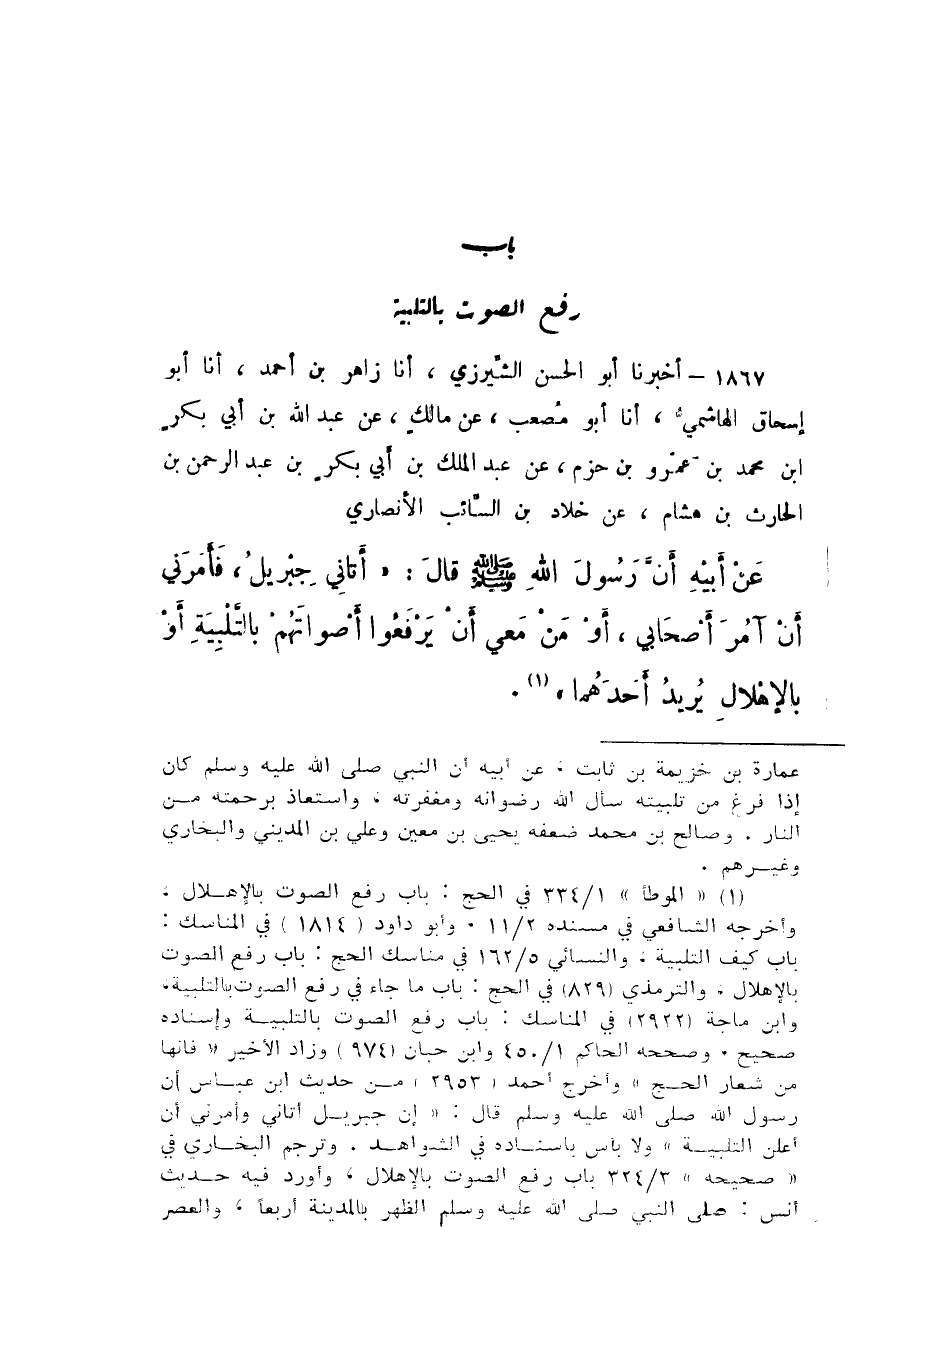 باب
رفع الصوت بالتلبية
١٨٦٧ – أخبرنا أبو الحسن الشِّيرزي ، أنا زاهر بن أحمد ، أنا أبو
إسحاق الهاشميُّ ، أنا أبو مُصعب ، عن مالكٍ ، عن عبد الله بن أبي بكرٍ
ابن محمد بن عمْرو بن حزم ، عن عبد الملك بن أبي بكرٍ بن عبد الرحمن بن
الحارث بن هشام ، عن خلاد بن السَّائب الأنصاري
عَنْ أَبيْهِ أَنَّ رَسُولَ اللهِ ﷺ قالَ : « أَتاني جِبْريلُ ، فَأَمَرَني
أَنْ آمُرَ أَصْحَابي ، أَوْ مَنْ مَعي أَنْ يَرْفَعُوا أَصْواتَهُمْ بالتَّلْبِيَةِ أَوْ
بالإهْلالِ يُريدُ أَحَدَهُما » (١) .
عمارة بن خزيمة بن ثابت ، عن أبيه أن النبي صلى الله عليه وسلم كان
إذا فرغ من تلبيته سأل الله رضوانه ومغفرته ، واستعاذ برحمته مــن
النار . وصالح بن محمد ضعفه يحيى بن معين وعلي بن المديني والبخاري
وغيــرهم .
(١) « الموطأ » ٣٣٤/١ في الحج : باب رفع الصوت بالإهــلال ،
وأخرجه الشافعي في مسنده ١١/٢ . وأبو داود ( ١٨١٤ ) في المناسك :
باب كيف التلبية ، والنسائي ١٦٢/٥ في مناسك الحج : باب رفع الصوت
بالإهلال ، والترمذي (٨٢٩) في الحج : باب ما جاء في رفع الصوت بالتلبية،
وابن ماجة (٢٩٢٢) في المناسك : باب رفع الصوت بالتلبيــة وإسناده
صحيح . وصححه الحاكم ٤٥٠/١ وابن حبان (٩٧٤ ) وزاد الأخير « فانها
من شعار الحــج » وأخرج أحمد ( ٢٩٥٣ ) مــن حديث ابن عبــاس أن
رسول الله صلى الله عليه وسلم قال : « إن جبريــل أتاني وأمرني أن
أعلن التلبيــة » ولا بأس باسنــاده في الشواهــد . وترجم البخــاري في
« صحيحه » ٣٢٤/٣ باب رفع الصوت بالإهلال ، وأورد فيه حــديث
أنس : صلى النبي صلى الله عليه وسلم الظهر بالمدينة أربعاً ، والعصر